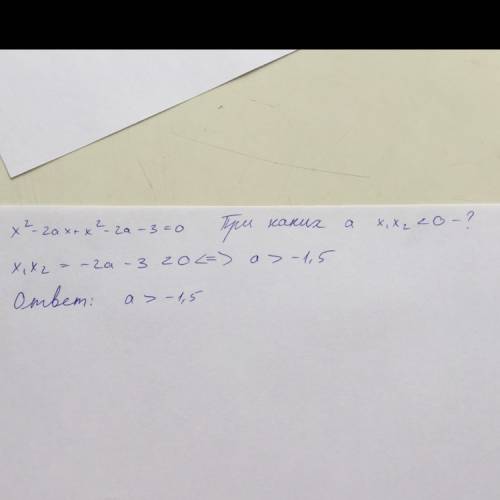 x² - 2ax + x² - 2a - 3 = 0 При каких a x₁x₂ < 0 - ?
x₁x₂ = -2a - 3 < 0 <=> a > -1,5
Ответ: a > -1,5